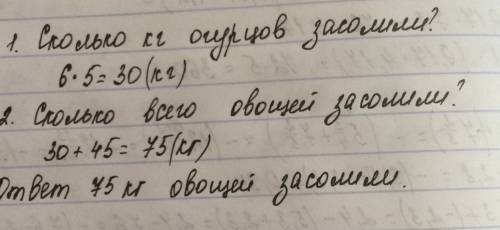 1. Сколько кг огурцов засолили?
6·5=30(кг)
2. Сколько всего овощей засолили?
30+45=75(кг)
Ответ 75 кг овощей засолили.